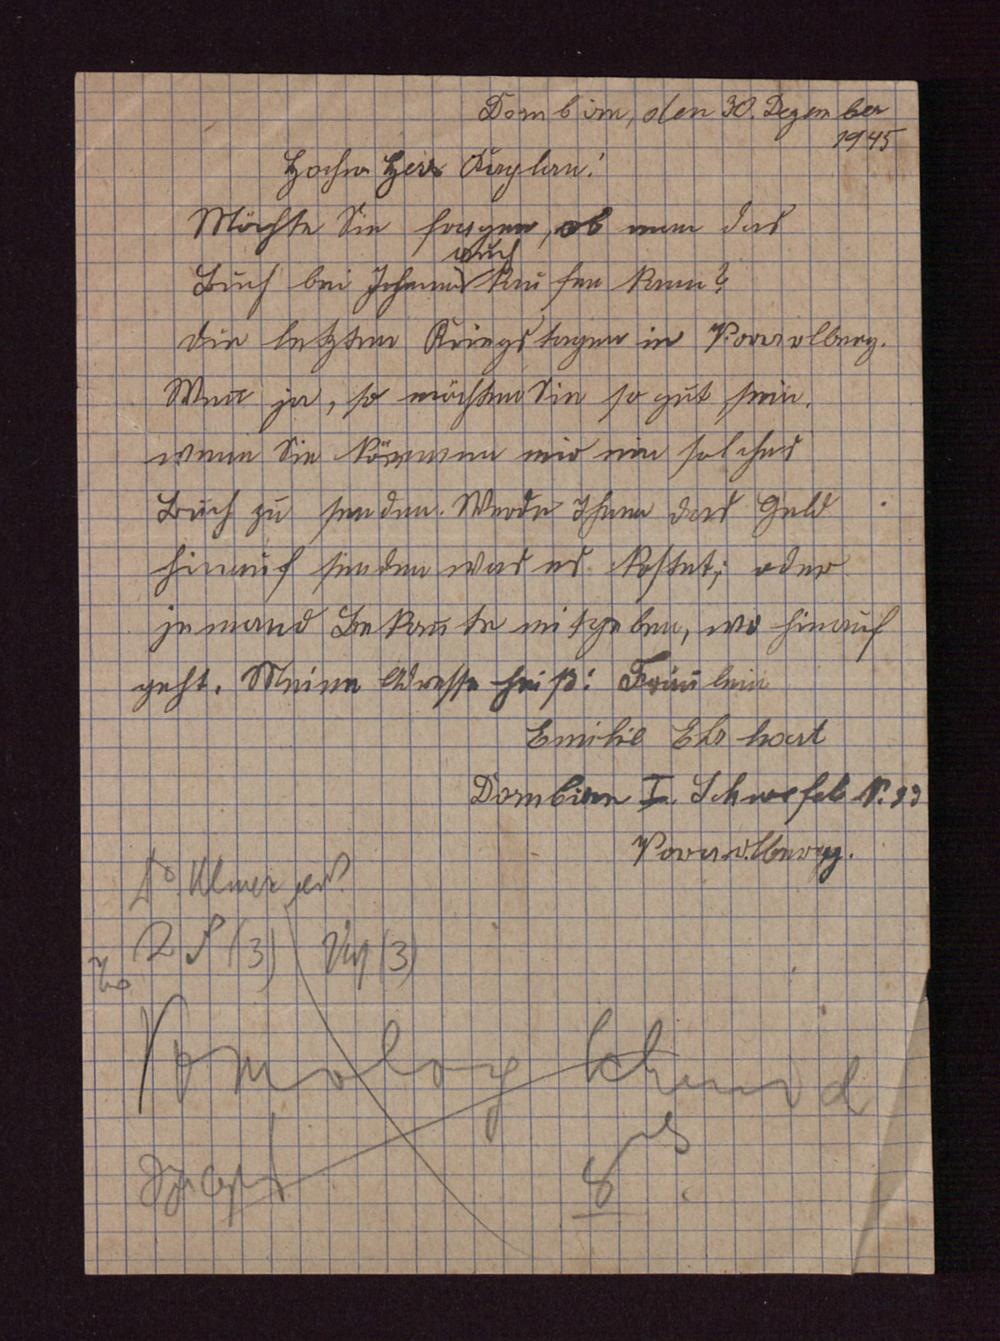 Dornbirn, den 30. Dezember
1945
Hochw Herr Kaplan!
Möchte Sie fragen, ob man das
auch
Buch bei Ihnen kaufen kann?
Die letzten Kriegstagen in Vorarlberg.
Wenn ja, so möchten Sie so gut sein,
wenn Sie können mir ein solches
Buch zu senden. Werde Ihnen das Geld
hinauf senden was es kostet; oder
jemand Bekannte mitgeben, wo hinauf
geht. Meine Adresse heiß: Fräulein
Emilie
Dornbirn I. N.
Vorarlberg.
Dr. Ulmer
(3) (3)
8